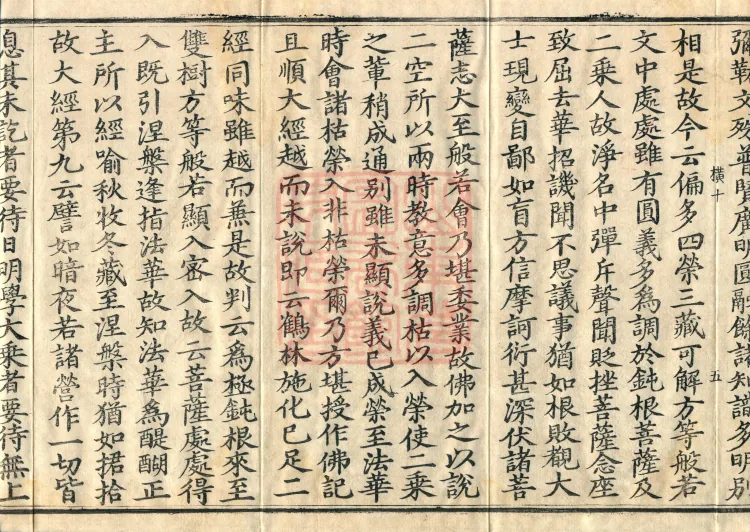 彌勒文殊普賢廣明圓融餘諸知識多明別
橫十 五
相是故今云偏多四榮三藏可解方等般若
文中處處雖有圓義多為調於鈍根菩薩及
二乘人故淨名中彈斥聲聞貶挫菩薩念座
致屈去華招譏聞不思議事猶如根敗觀大
士現變自鄙如盲方信摩訶衍甚深伏諸菩
薩志大至般若會乃堪委業故佛加之以說
二空所以兩時教意多調枯以入榮使二乘
之輩稍成通別雖未顯說義已成榮至法華
時會諸枯榮入非枯榮爾乃方堪授作佛記
且順大經越而未說即云鶴林施化已足二
經同味雖越而兼是故判云為極鈍根來至
雙樹方等般若顯入密入故云菩薩處處得
入既引涅槃逢指法華故知法華為醍醐正
主所以經喻秋收冬藏至涅槃時猶如捃拾
故大經第九云譬如暗夜若諸營作一切皆
息其未訖者要待日明學大乘者要待無上